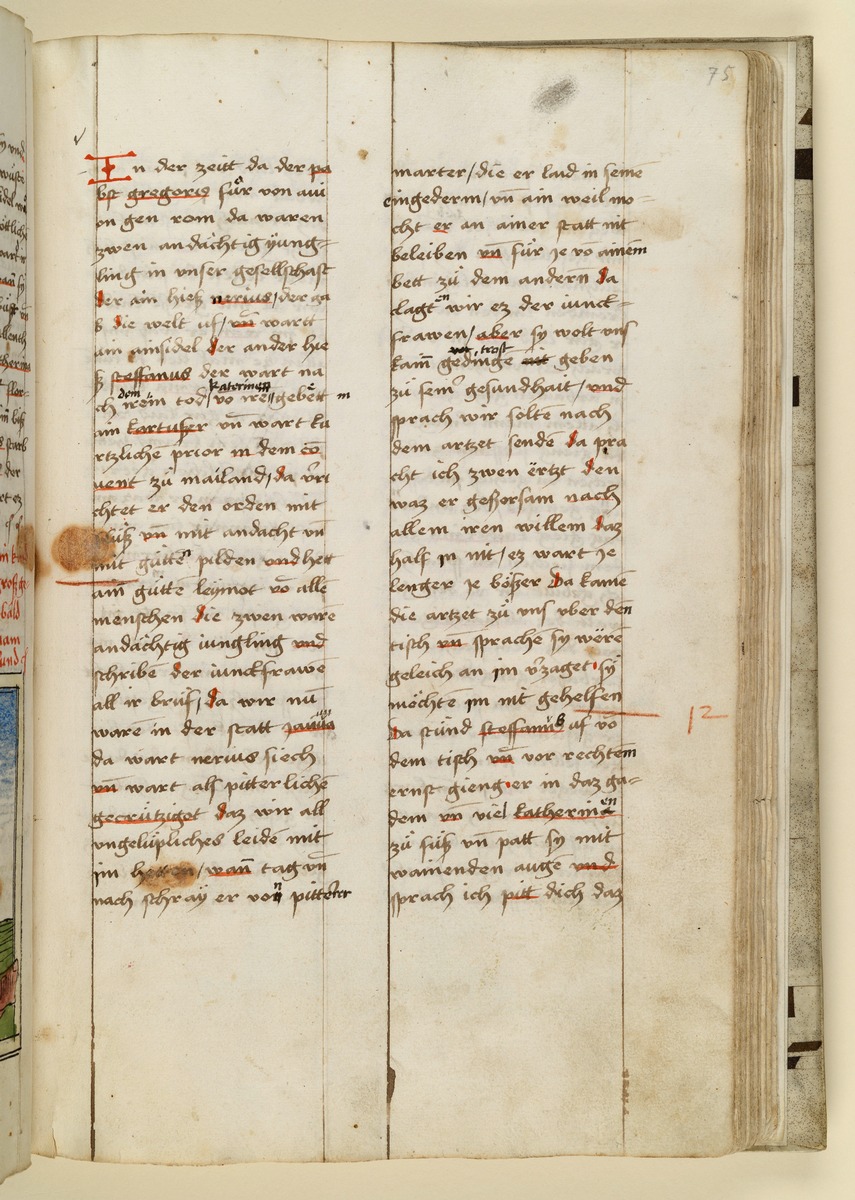 75
In der zeitt da der pa
bst gregoris fůr von aui
on gen rom da waren
zwen andächtig iung-
ling in vnser gesellschaft
der ain hieß nerius / der ga
b die welt uf / vñ wartt
ain ainsidel der ander hie
ß steffanus der wart na
ch dem irem tod / vō irē katerinen gebett
ain kartuser vñ wart ku
rtzlichē prior in dem cō
uent zů mailand / da v̄ri
chtet er den orden mit
flüß vñ mit andacht vñ
mit gůttē pilden vnd hett
ain gůttē leymot vō allē
menschen die zwen warē
andächtig iungling vnd
schribē der iunckfrawē
all ir brüf / da wir nū
warē in der statt januū
da wart nerius siech
vñ wart als pitterlichē
gecrützigot daz wir all
vngelüpliches leidē mit
im hetten / wañ tag vñ
nach schray er von pitterer
marter / die er laid in seinē
ingederm / vñ ain weil mo-
cht er an ainer statt nit
beleiben vñ fůr je vō ainem
bett zů dem andern da
clagten wir ez der iunck-
frawen / aber sy wolt vns
kain gedinge vor trost geben
zů seinr gesundhait / vnd
sprach wir soltē nach
dem artzet sendē da pra
cht ich zwen ërtzt den
waz er gehorsam nach
allem iren willem daz
half jn nit / ez wart je
lenger je böser Da kamē
die artzet zů vns vber den
tisch vñ sprachē sy wërē
geleich an im v̄zaget sy
möchtē im nit gehelfen
Da stůnd steffanus uf vō
dem tisch vñ vor rechtem
ernst gieng er in daz ga-
dem vñ viel katherinen
zů füß vñ patt sy mit
wainenden augē vnd
sprach ich pitt dich daz
12